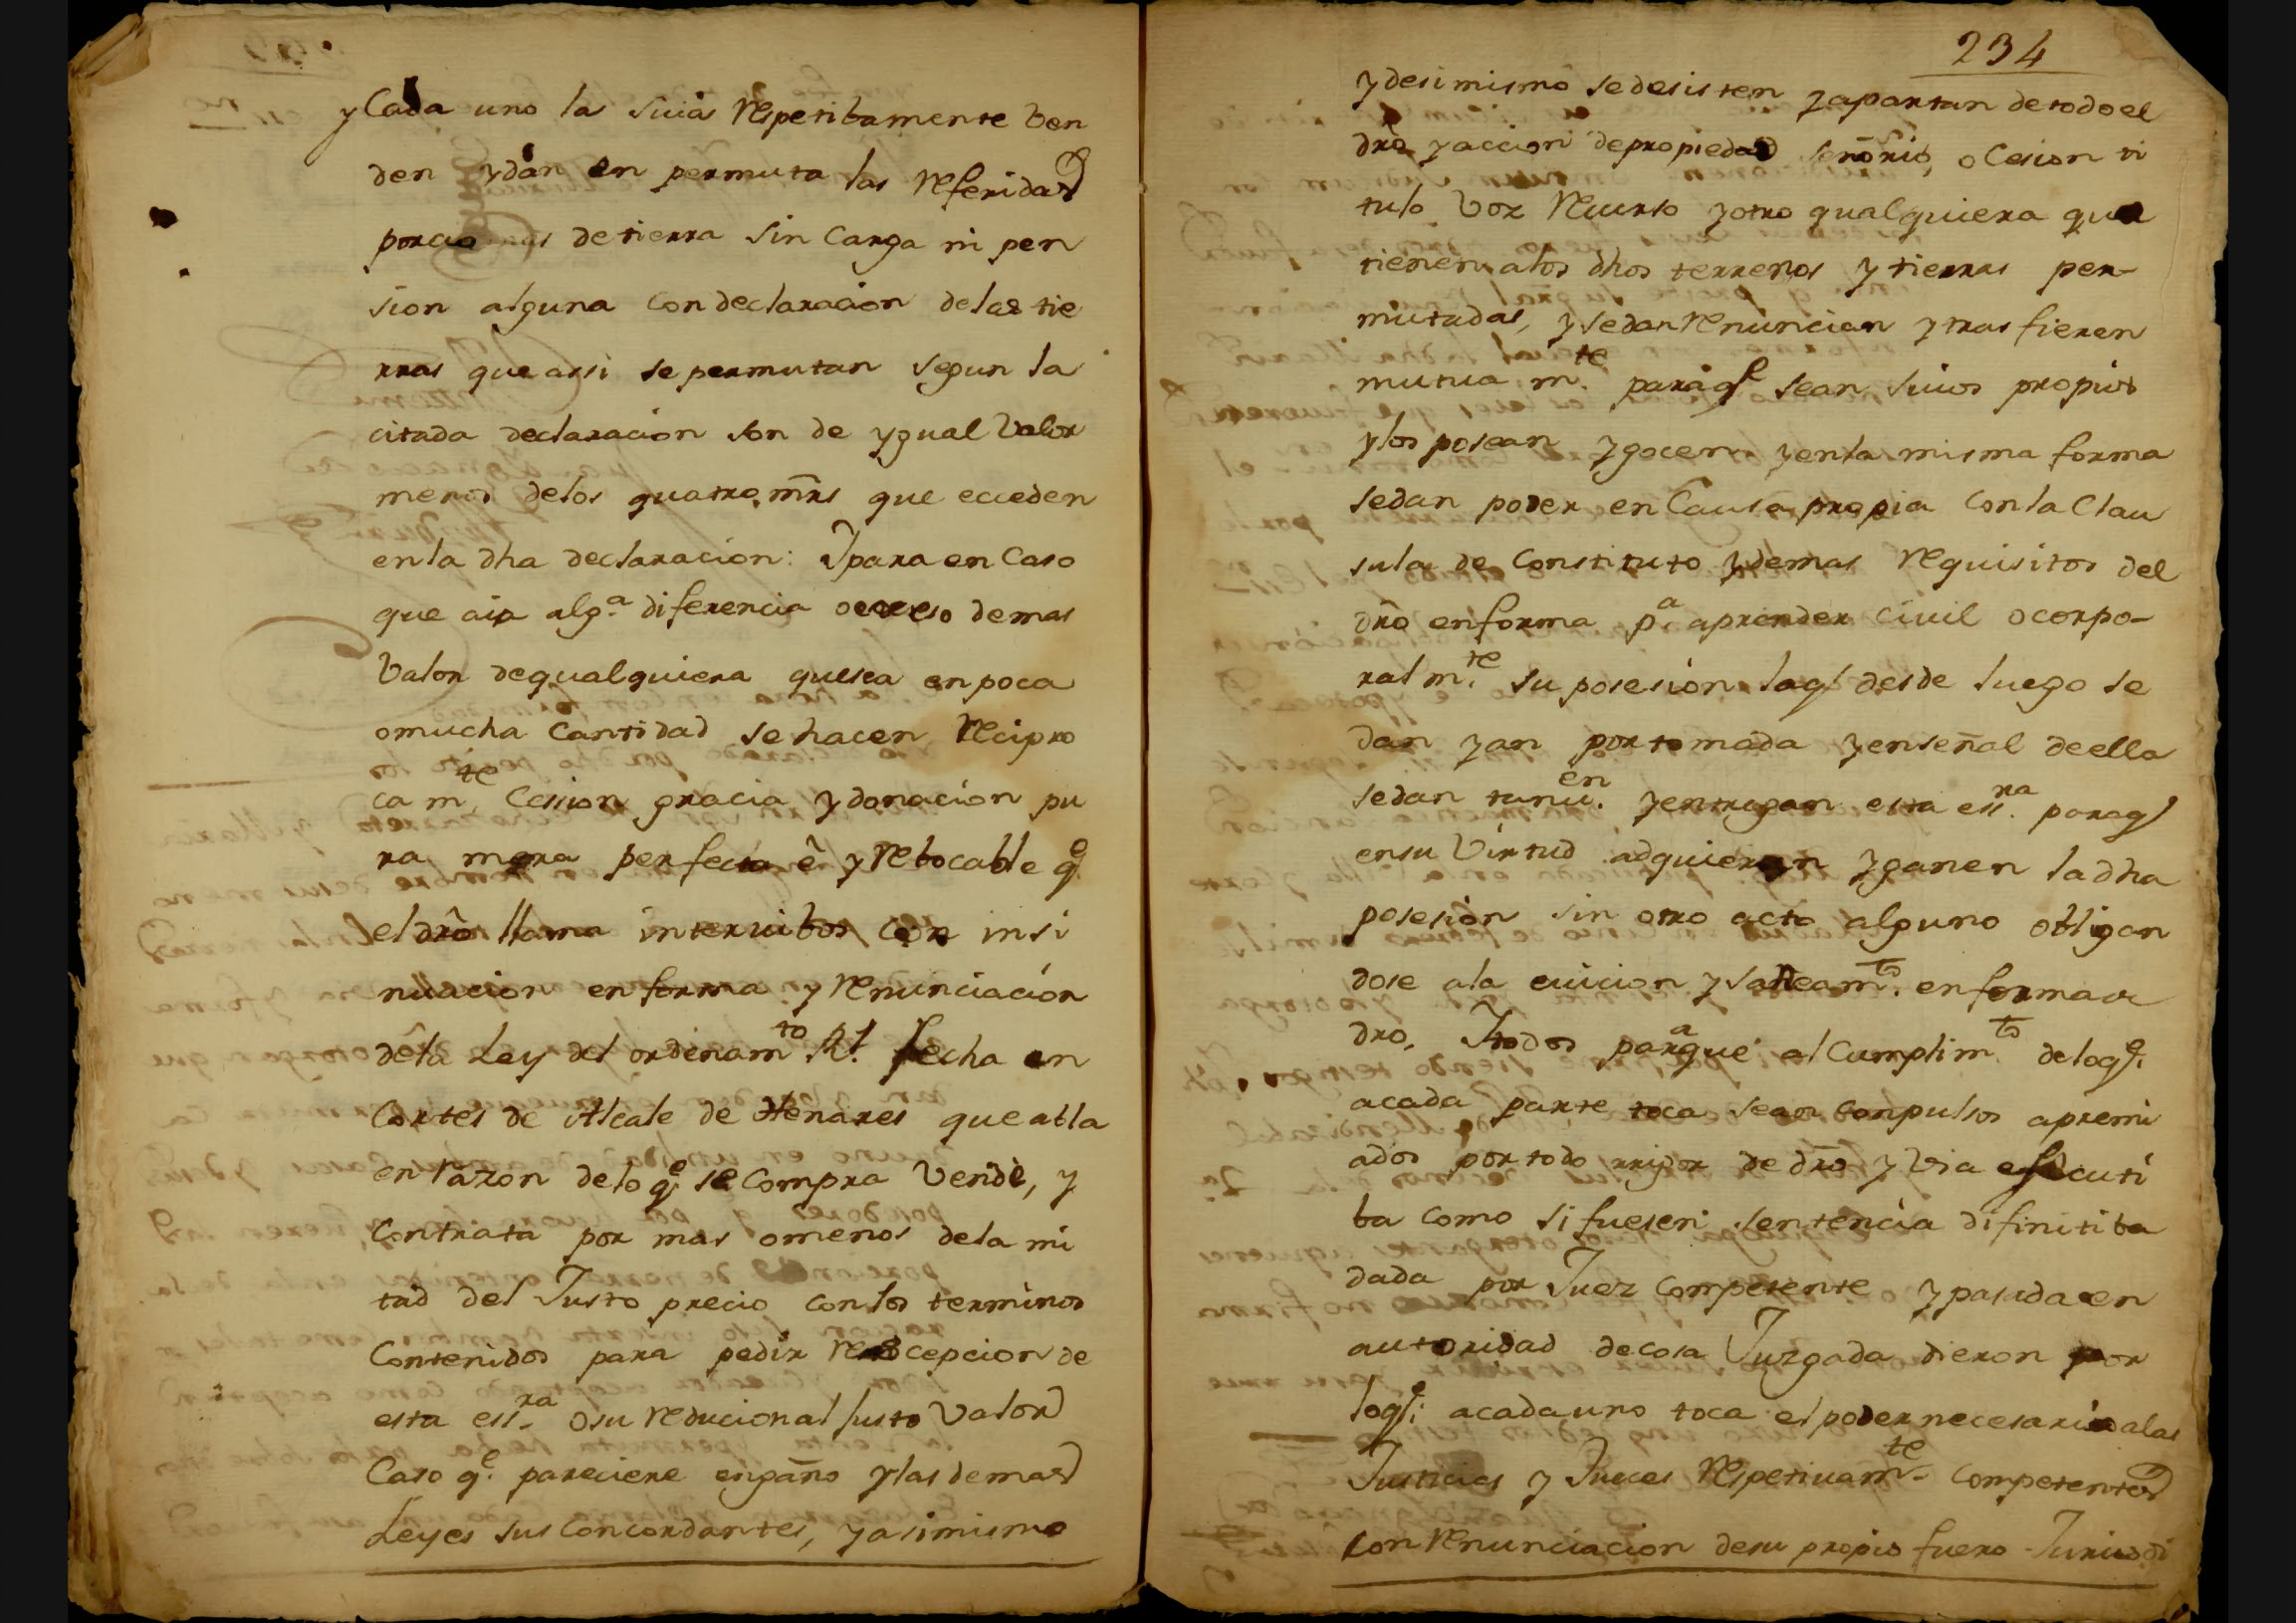 y Cada uno la suia Respetibamente ben
den y dan en permuta las Referidas
porcio nes de tierra sin Carga ni pen
sion alguna con declaracion de las tie
rras que assi se permutan segun la
citada declaracion son de ygual Valor
menos de los quatro mrs que eceden
en la dha declaracion: Y para en Caso
que aia alg.a diferencia o eceso de mas
Valor de qualquiera que sea en poca
o mucha Cantidad se hacen Recipro
ca m.te Cesion gracia y donacion pu
ra mera perfecta é yRebocable q.e
el dro llama intervibos con insi
nuacion en forma y Renunciación
de la Ley del ordenam.to Rl. fecha en
Cortes de Alcale de Henares que abla
en razon de lo q.e se Compra Vende, y
Contrata por mas o menos de la mi
tad del Justo precio con los terminos
Contenidos para pedir Rescepcion de
esta ess.ra o su reducion al Justo Valor
Caso q.e pareciere engaño y las demas
Leyes sus Concordantes, y asimismo
234
y de si mismo se desisten y apartan de todo el
dro y accion de propiedad señorio, o Cesion ti
tulo Voz Recurso y otro qualquiera que
tienen a los dhos terrenos y tierras per-
mutadas, y se dan Renuncian y trasfieren
mutua m.te para q.e sean suios propios
y los posean y gocen y en la misma forma
se dan poder en Causa propia con la Clau
sula de Constituto y demas Requisitos del
dro en forma p.a aprender civil o corpo-
ral m.te su posesión la q.e desde luego se
dan y an por tomada y en señal de ella
se dan tanv.en y entregan esta ess.ra para q.e
en su Virtud adquieran y ganen la dha
posesión sin otro acto alguno obligan
dose a la evicion y saneam.to en forma de
dro. Y todos para que al Cumplim.to de lo q.e
a cada parte toca sean conpulsos apremi
ados por todo rrigor de dro y Via efecuti
ba como si fuesen sentencia difinitiba
dada por Juez Competente y pasada en
autoridad de cosa Juzgada dieron por
lo q.e a cada uno toca el poder necesario a las
Justicias y Jueces Respetivam.te Competentes
con Renunciacion de su propio fuero Jurisdi